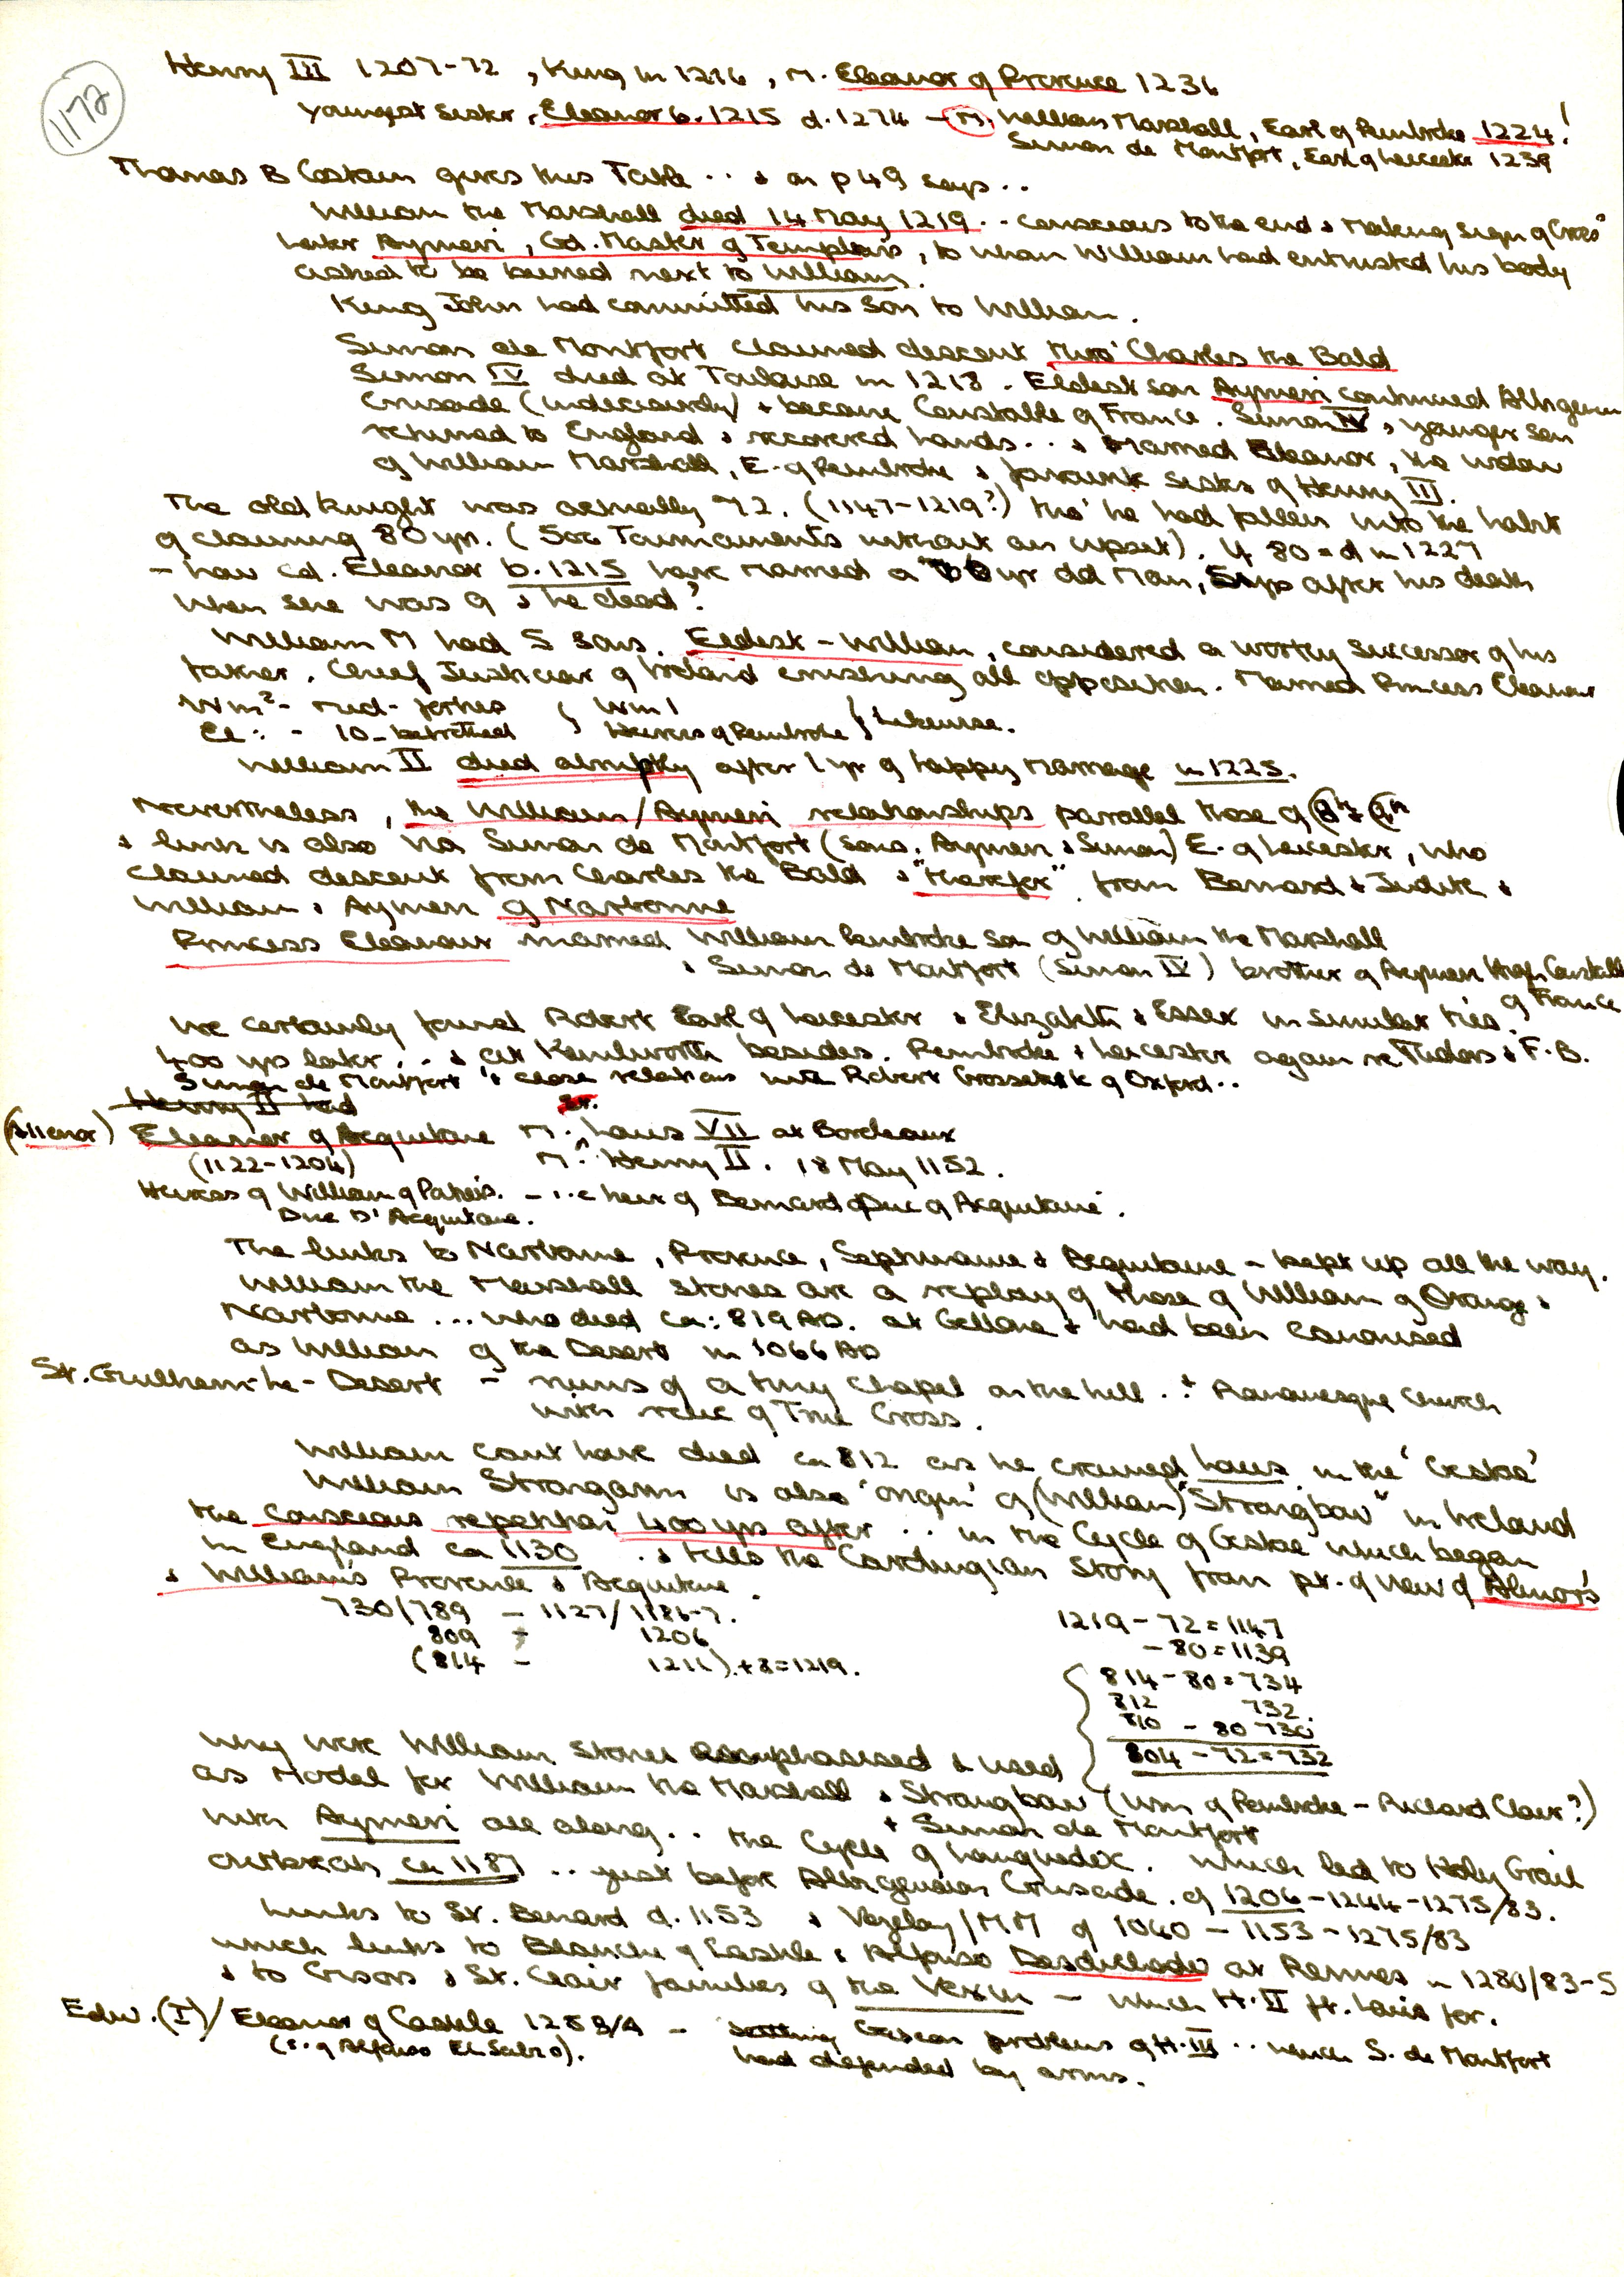 1172
Henry III 1207-72, King in 1216, M. Eleanor of Provence 1236
Youngest Sister, Eleanor b. 1215 d. 1274 - M. William Marshall, Earl of Pembroke 1224!
Simon de Montfort, Earl of Leicester 1239
Thomas B Costain gives this Table .. & on p 49 says ..
William the Marshall died 14 May 1219 .. conscious to the end & making sign of Cross
Later Aymeri, Gd. Master of Templars, to whom William had entrusted his body
asked to be buried next to William.
King John had committed his son to William.
Simon de Montfort claimed descent thro' Charles the Bald
Simon IV died at Toulouse in 1218. Eldest son Aymeri continued Albigensian
Crusade (indecisively) & became Constable of France. Simon IV, younger son
returned to England & recovered lands .. & Married Eleanor, the widow
of William Marshall, E. of Pembroke & favourite sister of Henry III.
The old knight was actually 72. (1147-1219?) tho' he had fallen into the habit
of claiming 80 yrs. (500 Tournaments without an upset). If 80 = d in 1227
- how cd. Eleanor b. 1215 have married a yr old man, 5 yrs after his death
when she was 9 & he dead?
William M had 5 sons. Eldest - William, considered a worthy successor of his
father. Chief Justiciar of Ireland crushing all opposition. Married Princess Eleanor
Wm² - mid-forties } Wm 1 } Likewise.
El: - 10 - betrothed } Heiress of Pembroke }
William II died abruptly after 1 yr of happy marriage in 1225.
Nevertheless, the William/Aymeri relationships parallel those of 8th & 9th
& link is also via Simon de Montfort (Sons, Aymeri & Simon) E. of Leicester, who
claimed descent from Charles the Bald & "therefor" from Bernard & Judith &
William & Aymeri of Narbonne
Princess Eleanour married William Pembroke son of William the Marshall
& Simon de Montfort (Simon IV) brother of Aymeri High Constable
of France
We certainly found Robert Earl of Leicester & Elizabeth & Essex in similar ties
400 yrs later .. & at Kenilworth besides. Pembroke & Leicester again re Tudors & F.B.
Simon de Montfort 's close relations with Robert Grosseteste of Oxford ..
Henry II had
(Alienor) Eleanor of Acquitaine M. Louis VII at Bordeaux
(1122-1204) M. Henry II. 18 May 1152.
Heiress of William of Poitiers. - i.e heir of Bernard Duc of Acquitaine.
Duc D'Acquitaine.
The links to Narbonne, Provence, Septimanie & Acquitaine - kept up all the way.
William the Marshall stories are a replay of those of William of Orange &
Narbonne ... who died ca: 812 AD. at Gellone & had been canonised
as William of the Desert in 1066 AD
St. Guilhem-le-Desert - ruins of a tiny chapel on the hill .. + Romanesque Church
with relic of True Cross.
William cant have died ca 812 as he crowned Louis in the 'Geste'
William Strongarm is also 'origin' of (William) "Strongbow" in Ireland
the conscious repetition 400 yrs after .. in the Cycle of Gestes which began
in England ca 1130 .. & tells the Carolingian Story from pt. of view of Alienor's
& William's Provence & Acquitaine.
730/789 - 1127/1186-7.
809 - 1206
(814 - 1211).+8=1219.
1219 - 72 = 1147
- 80 = 1139
814 - 80 = 734
812 732.
810 - 80 730
804 - 72 = 732
Why were William Stories emphasised & used
as model for William the Marshall & Strongbow (Wm of Pembroke - Richard Clare?)
+ Simon de Montfort
with Aymeri all along .. the Cycle of Languedoc. Which led to Holy Grail
outbreak ca 1187 .. just before Albigensian Crusade. of 1206-1244-1275/83.
Links to St. Benard d. 1153 & Vezelay/M.M of 1040 - 1153 - 1275/83
which links to Blanche of Castile & Alfonso Desdichado at Rennes in 1280/83-5
& to Gisors & St. Clair families of the Vexin - which H. II ft. Louis for.
Edw. (I)/Eleanor of Castile 1253/4 - settling Gascon problems of H. III .. which S. de Montfort
(s. of Alfonso El Sabio). had defended by arms.